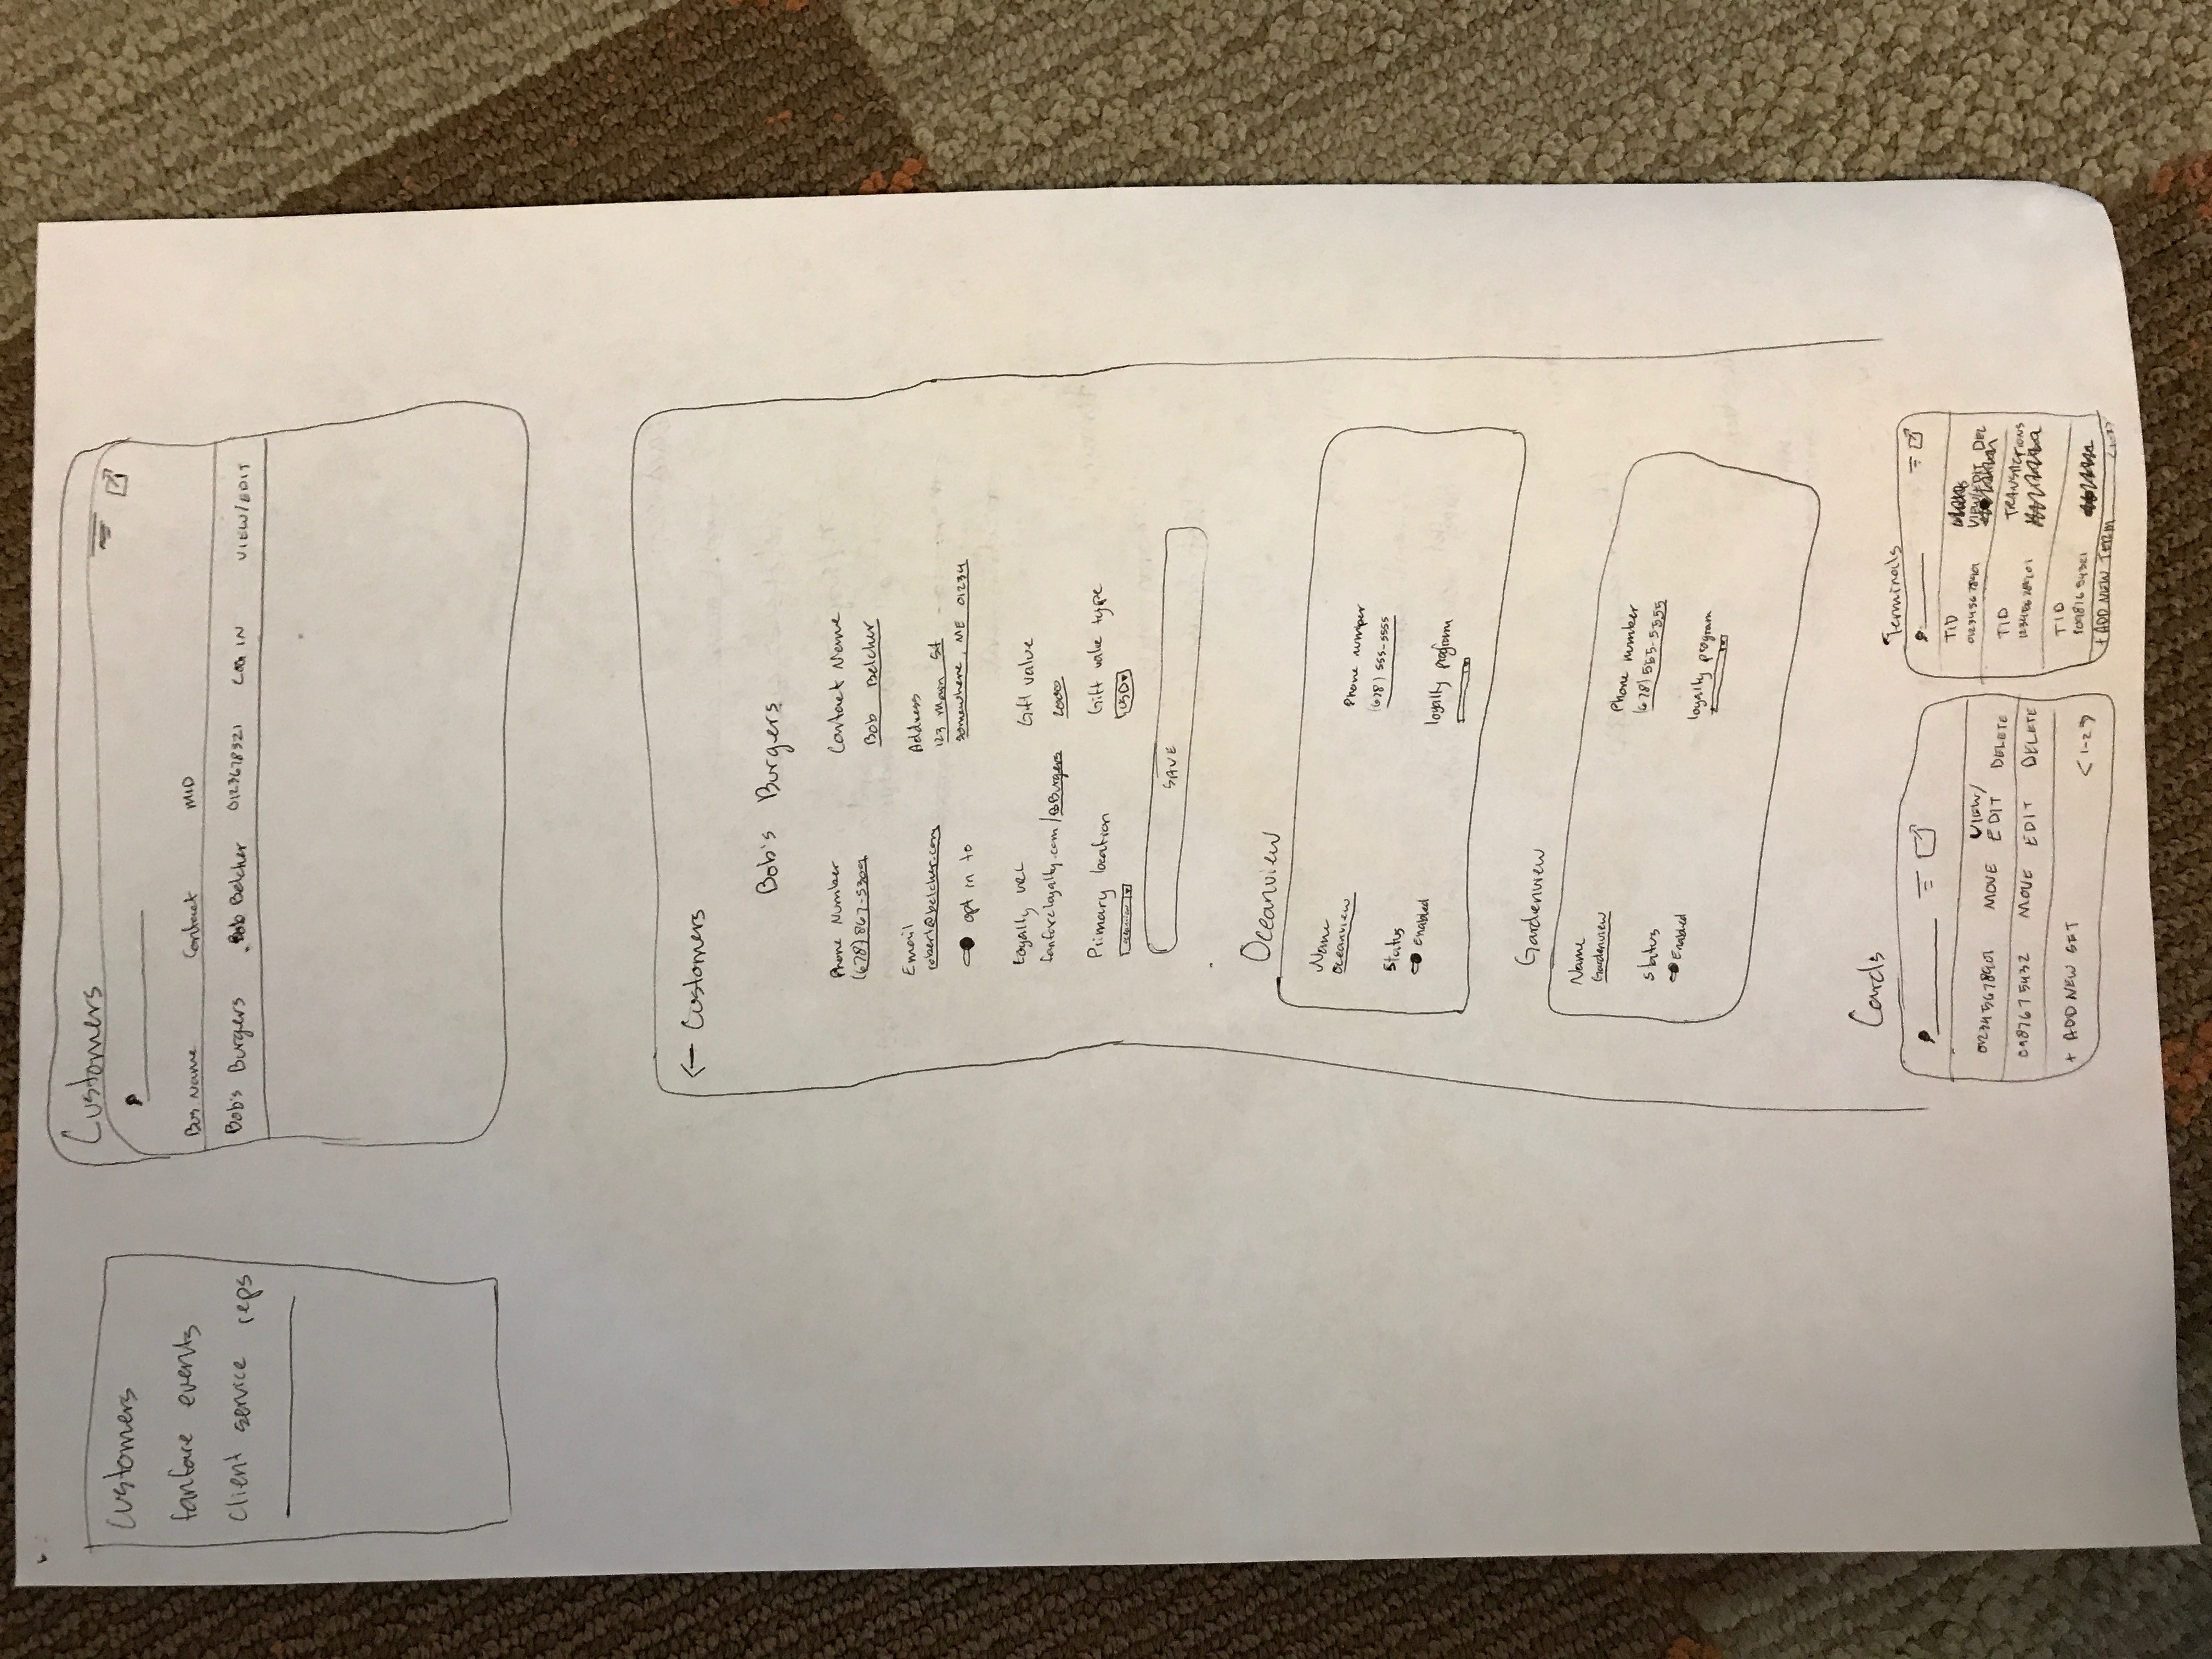 Customers
fanfare events
Client service reps
Customers
Bus Name Contact MID
Bob's Burgers Bob Belcher 0123678321 LOG IN VIEW/EDIT
← Customers
Bob's Burgers
Phone Number Contact Name
(678) 867-5309 Bob Belcher
Email Address
robert@belcher.com 123 Main St
Somewhere, ME 01234
opt in to
Loyalty URL Gift value
fanfareloyalty.com/BBurgers 2000
Primary location Gift value type
oceanview USD
SAVE
Oceanview
Name
Oceanview
Phone number
(678) 555-5555
Status
Enabled
loyalty program
Gardenview
Name
Gardenview
Phone number
(678) 555-5555
Status
Enabled
loyalty program
Cards
012345678901 MOVE VIEW/EDIT DELETE
0987675432 MOVE EDIT DELETE
+ ADD NEW SET
< 1-2 >
Terminals
TID
012345678901 VIEW/EDIT DEL
TID TRANSACTIONS
TID
+ ADD NEW TERM